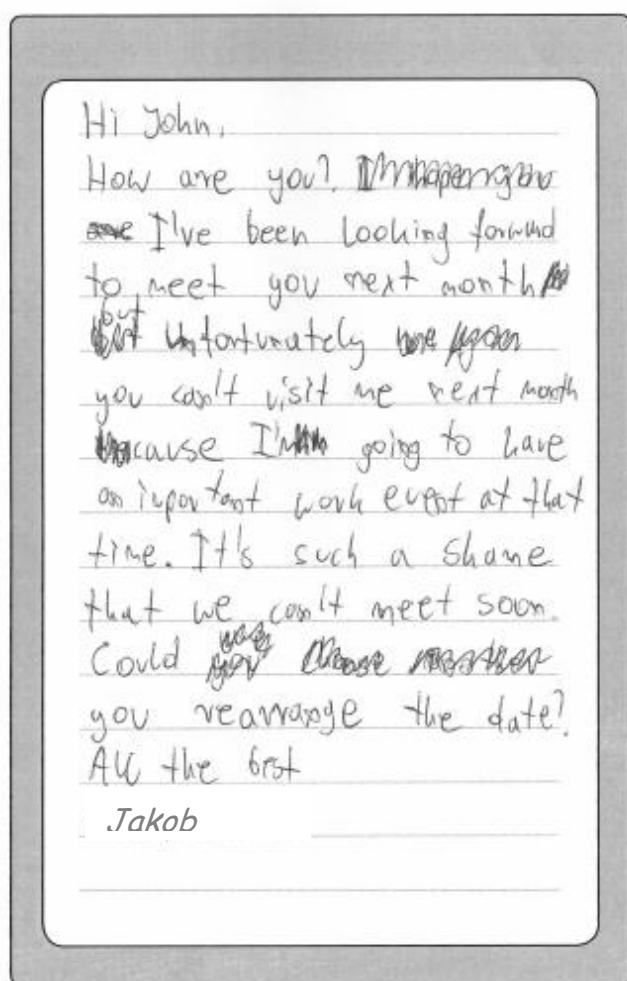 Hi John,
How are you?
I've been looking forward
to meet you next month
but unfortunately
you can't visit me next month
cause I'm going to have
an inportant work event at that
time. It's such a shame
that we can't meet soon.
Could
you rearrange the date?
All the best
Jakob